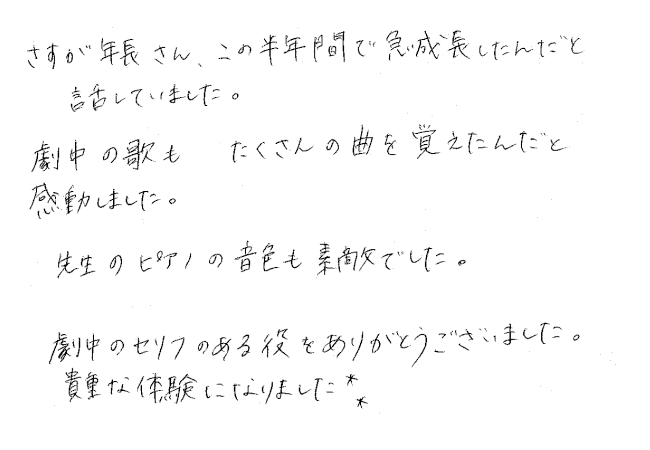 さすが年長さん、この半年間で急成長したんだと
話していました。
劇中の歌も たくさんの曲を覚えたんだと
感動しました。
先生のピアノの音色も素敵でした。
劇中のセリフのある役をありがとうございました。
貴重な体験になりました**